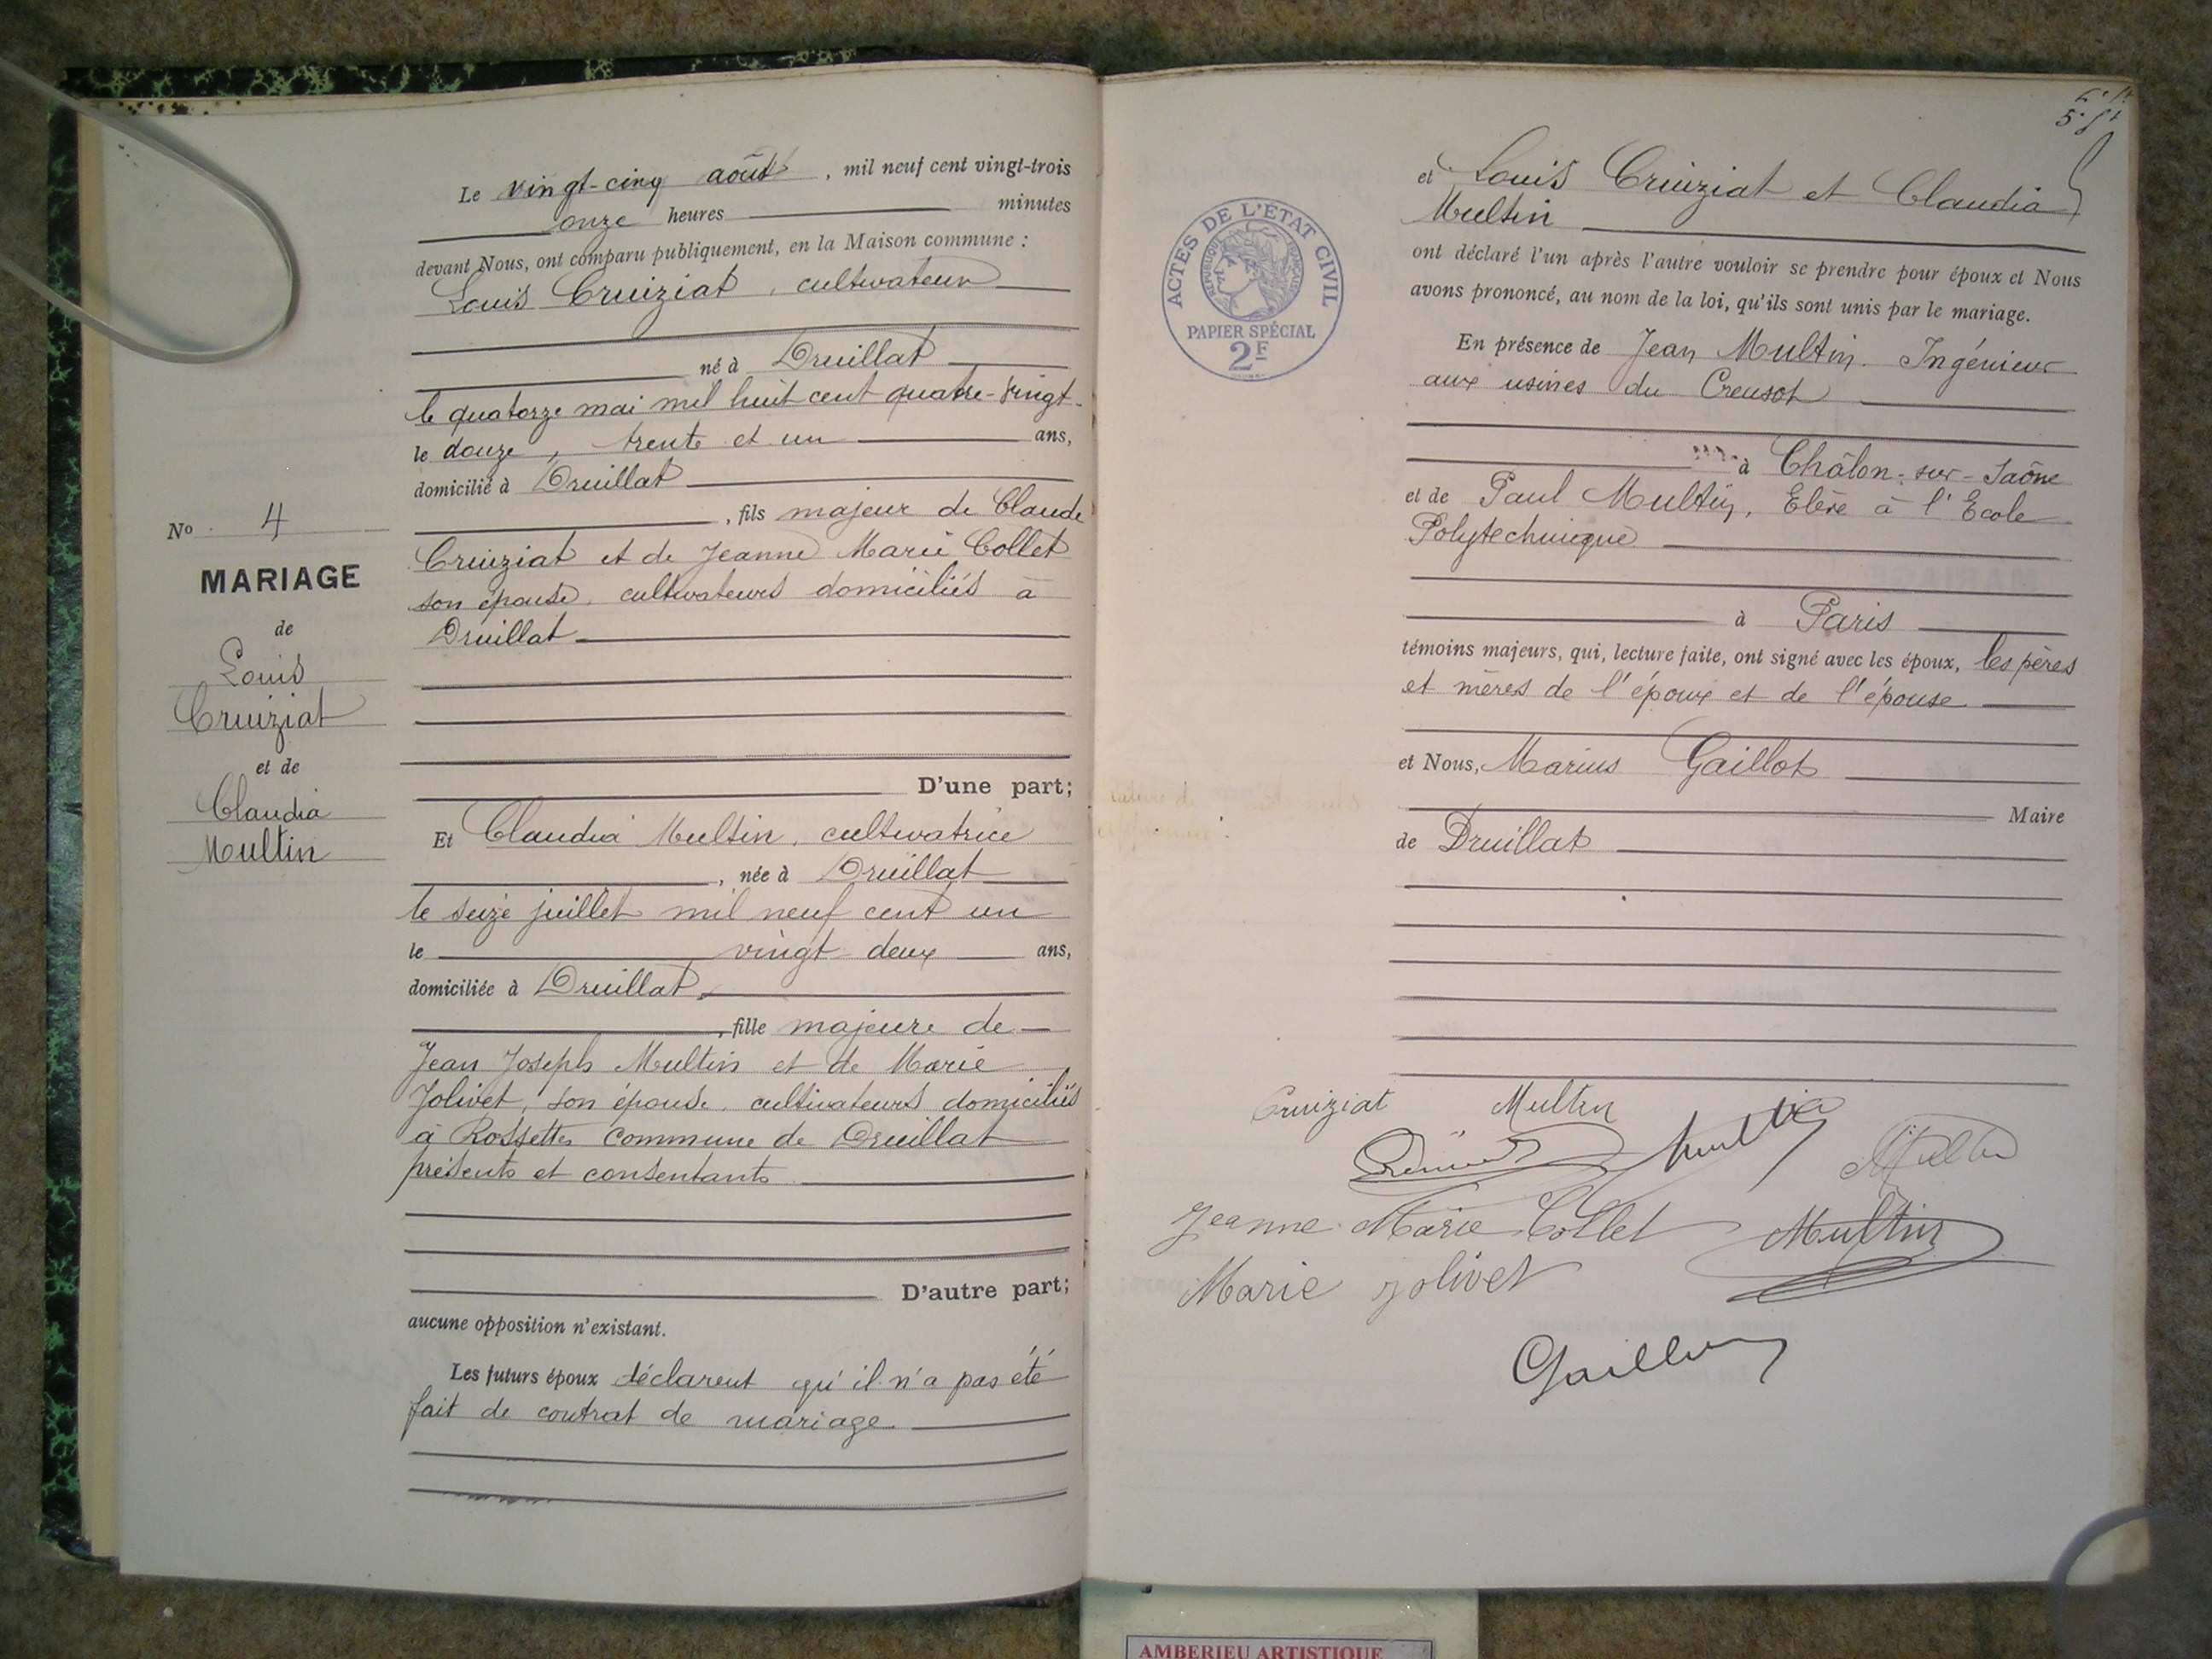 Le vingt-cinq août, mil neuf cent vingt-trois
onze heures minutes
devant Nous, ont comparu publiquement, en la Maison commune :
Louis Cruiziat, cultivateur
né à Druillat
le quatorze mai mil huit cent quatre-vingt-
le douze, trente et un ans,
domicilié à Druillat
, fils majeur de Claude
Cruiziat et de Jeanne Marie Collet
son épouse, cultivateurs domiciliés à
Druillat
D'une part;
No 4
MARIAGE
de
Louis
Cruiziat
et de
Claudia
Multin
Et Claudia Multin, cultivatrice
, née à Druillat
le seize juillet mil neuf cent un
le vingt deux ans,
domiciliée à Druillat,
, fille majeure de
Jean Joseph Multin et de Marie
Jolivet, son épouse, cultivateurs domiciliés
à Rossettes commune de Druillat
présents et consentants
D'autre part;
aucune opposition n'existant.
Les futurs époux déclarent qu'il n'a pas été
fait de contrat de mariage
et Louis Cruiziat et Claudia
Multin
ont déclaré l'un après l'autre vouloir se prendre pour époux et Nous
avons prononcé, au nom de la loi, qu'ils sont unis par le mariage.
ACTES DE L'ÉTAT CIVIL
RÉPUBLIQUE FRANÇAISE
PAPIER SPÉCIAL
2F
En présence de Jean Multin. Ingénieur
aux usines du Creusot
à Châlon-sur-Saône
et de Paul Multin, Elève à l'Ecole
Polytechnique
à Paris
témoins majeurs, qui, lecture faite, ont signé avec les époux, les pères
et mères de l'époux et de l'épouse
et Nous, Marius Gaillot
Maire
de Druillat
Cruiziat Multin
Multin
Jeanne Marie Collet Multin
Marie Jolivet
Gaillot
AMBERIEU ARTISTIQUE